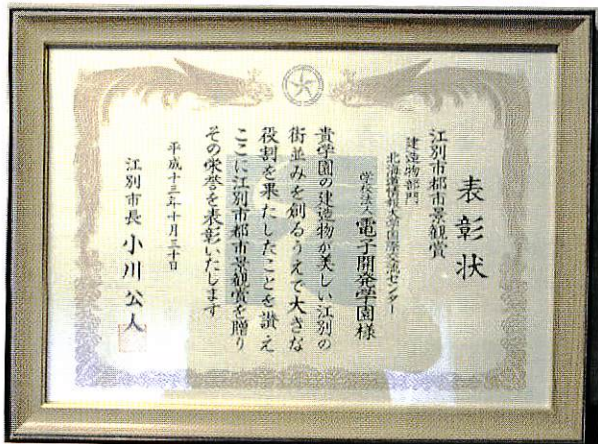 表彰状
江別市都市景観賞
建造物部門
北海道情報大学国際交流センター
学校法人 電子開発学園様
貴学園の建造物が美しい江別の
街並みを創るうえで大きな
役割を果たしたことを讃え
ここに江別市都市景観賞を贈り
その栄誉を表彰いたします
平成十三年十月三十日
江別市長 小川公人